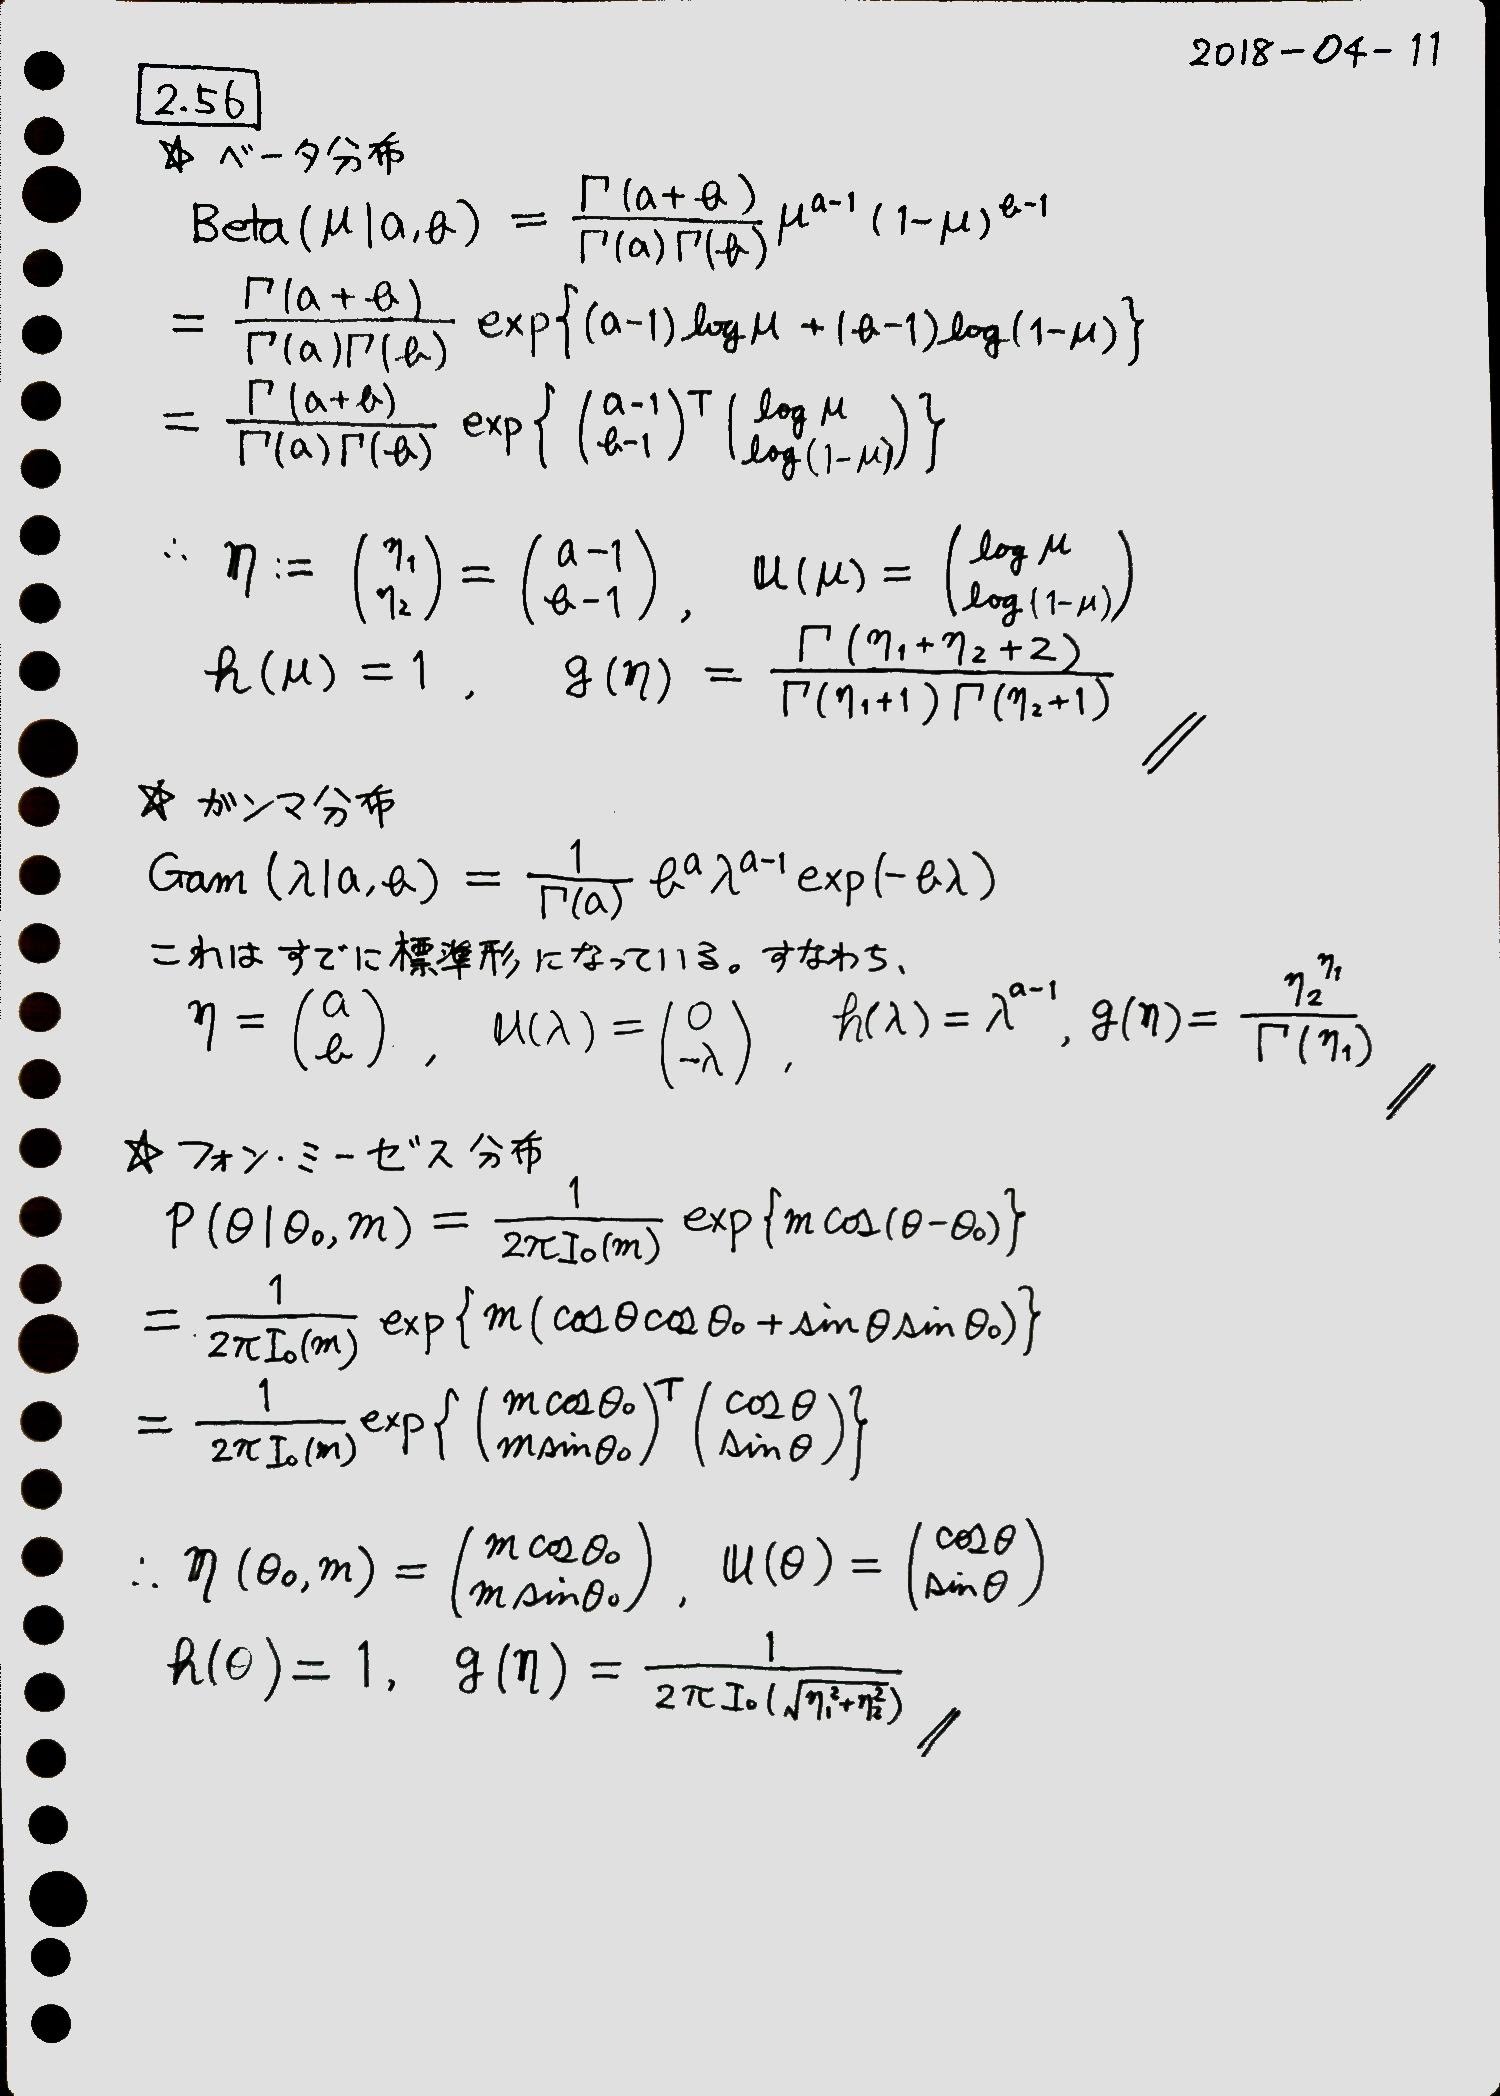 2018-04-11
2.56
☆ ベータ分布
Beta(μ|a,b) = Γ(a+b)/Γ(a)Γ(b) μ^{a-1} (1-μ)^{b-1}
= Γ(a+b)/Γ(a)Γ(b) exp{(a-1)log μ + (b-1)log(1-μ)}
= Γ(a+b)/Γ(a)Γ(b) exp{ (a-1 b-1)^T (log μ log(1-μ)) }
∴ η := (η₁ η₂) = (a-1 b-1), u(μ) = (log μ log(1-μ))
h(μ) = 1, g(η) = Γ(η₁+η₂+2)/Γ(η₁+1)Γ(η₂+1) //
☆ ガンマ分布
Gam(λ|a,b) = 1/Γ(a) b^a λ^{a-1} exp(-bλ)
これはすでに標準形になっている。すなわち、
η = (a b), u(λ) = (0 -λ), h(λ) = λ^{a-1}, g(η) = η₂^{η₁}/Γ(η₁) //
☆ フォン・ミーゼス分布
P(θ|θ₀,m) = 1/2πI₀(m) exp{m cos(θ-θ₀)}
= 1/2πI₀(m) exp{m(cosθcosθ₀+sinθsinθ₀)}
= 1/2πI₀(m) exp{ (m cosθ₀ m sinθ₀)^T (cosθ sinθ) }
∴ η(θ₀,m) = (m cosθ₀ m sinθ₀), u(θ) = (cosθ sinθ)
h(θ) = 1, g(η) = 1/2πI₀(√η₁²+η₂²) //